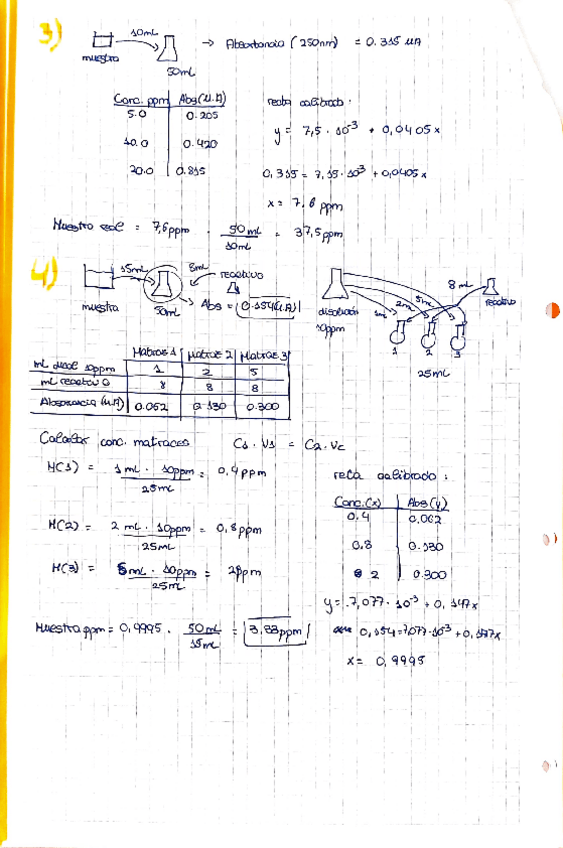 3)
10mL
→ Absorbancia (250nm) = 0.315 UA
muestra
50mL
Conc. ppm | Abs (U.A)
5.0 | 0.205
10.0 | 0.420
20.0 | 0.815
recta calibrado:
y = 7,5 · 10⁻³ + 0,0405x
0,315 = 7,15 · 10⁻³ + 0,0405x
x = 7.6 ppm
Muestra real = 7,6ppm · 50mL / 10mL = 37,5ppm
4)
15mL
8mL
reactivo
muestra
50mL
Abs = 0.154 (U.A)
disolución
10ppm
1mL
2mL
5mL
8mL
reactivo
1 2 3
25mL
Matraz 1 | Matraz 2 | Matraz 3
mL disol 10ppm | 1 | 2 | 5
mL reactivo | 8 | 8 | 8
Absorbancia (UA) | 0.062 | 0.130 | 0.300
Calcular conc. matraces C1 · V1 = C2 · Vc
M(1) = 1mL · 10ppm / 25mL = 0,4ppm
M(2) = 2mL · 10ppm / 25mL = 0,8ppm
M(3) = 5mL · 10ppm / 25mL = 2ppm
recta calibrado:
Conc. (x) | Abs (y)
0.4 | 0,062
0.8 | 0.130
2 | 0.300
y = 7,077 · 10⁻³ + 0,147x
0,154 = 7,077 · 10⁻³ + 0,147x
x = 0,9995
Muestra ppm = 0,9995 · 50mL / 15mL = 3,33ppm